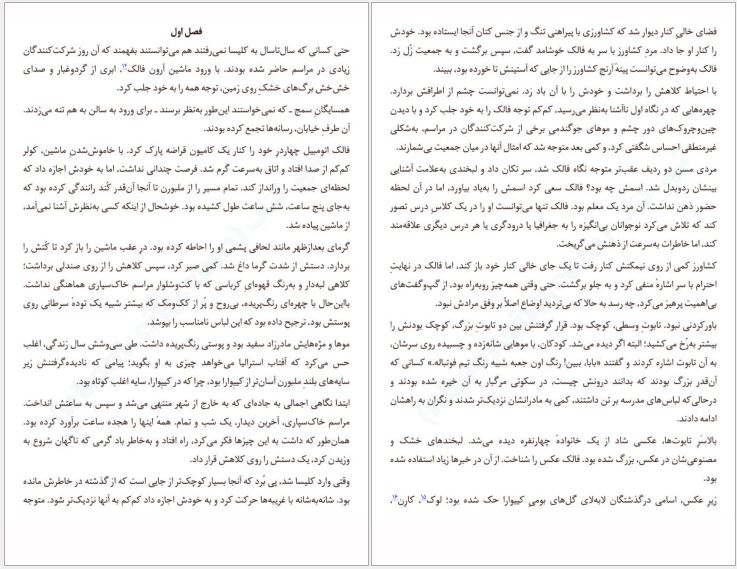 فصل اول
حتی کسانی که سال‌تاسال به کلیسا نمی‌رفتند هم می‌توانستند بفهمند که آن روز شرکت‌کنندگان
زیادی در مراسم حاضر شده بودند. با ورود ماشین آرون فالک۱۴، ابری از گردوغبار و صدای
خش‌خش برگ‌های خشک روی زمین، توجه همه را به خود جلب کرد.
همسایگانِ سمج ـ که نمی‌خواستند این‌طور به‌نظر برسند ـ برای ورود به سالن به هم تنه می‌زدند.
آن طرف خیابان، رسانه‌ها تجمع کرده بودند.
فالک اتومبیل چهاردرِ خود را کنار یک کامیون قراضه پارک کرد. با خاموش‌شدنِ ماشین، کولر
کم‌کم از صدا افتاد و اتاق به‌سرعت گرم شد. فرصت چندانی نداشت، اما به خودش اجازه داد که
لحظه‌ای جمعیت را ورانداز کند. تمام مسیر را از ملبورن تا آنجا آن‌قدر کُند رانندگی کرده بود که
به‌جای پنج ساعت، شش ساعت طول کشیده بود. خوشحال از اینکه کسی به‌نظرش آشنا نمی‌آمد،
از ماشین پیاده شد.
گرمای بعدازظهر مانند لحافی پشمی او را احاطه کرده بود. درِ عقب ماشین را باز کرد تا کُتش را
بردارد. دستش از شدت گرما داغ شد. کمی صبر کرد، سپس کلاهش را از روی صندلی برداشت؛
کلاهی لبه‌دار و به‌رنگ قهوه‌ایِ کرباسی که با کت‌وشلوار مراسم خاک‌سپاری هماهنگی نداشت.
بااین‌حال با چهره‌ای رنگ‌پریده، بی‌روح و پُر از کک‌ومک که بیشتر شبیه یک تودهٔ سرطانی روی
پوستش بود، ترجیح داده بود که این لباس نامناسب را بپوشد.
موها و مژه‌هایش مادرزاد سفید بود و پوستی رنگ‌پریده داشت. طی سی‌وشش سال زندگی، اغلب
حس می‌کرد که آفتاب استرالیا می‌خواهد چیزی به او بگوید؛ پیامی که نادیده‌گرفتنش زیر
سایه‌های بلندِ ملبورن آسان‌تر از کیوارا بود، چرا که در کیوارا، سایه اغلب کوتاه بود.
ابتدا نگاهی اجمالی به جاده‌ای که به خارج از شهر منتهی می‌شد و سپس به ساعتش انداخت.
مراسم خاک‌سپاری، آخرین دیدار، یک شب و تمام. همهٔ اینها را هجده ساعت برآورد کرده بود.
همان‌طور که داشت به این چیزها فکر می‌کرد، راه افتاد و به‌خاطر باد گرمی که ناگهان شروع به
وزیدن کرد، یک دستش را روی کلاهش قرار داد.
وقتی وارد کلیسا شد، پی بُرد که آنجا بسیار کوچک‌تر از جایی است که از گذشته در خاطرش مانده
بود. شانه‌به‌شانه با غریبه‌ها حرکت کرد و به خودش اجازه داد کم‌کم به آنها نزدیک‌تر شود. متوجه
فضای خالی کنار دیوار شد که کشاورزی با پیراهنی تنگ و از جنس کتان آنجا ایستاده بود. خودش
را کنار او جا داد. مردِ کشاورز با سر به فالک خوشامد گفت، سپس برگشت و به جمعیت زُل زد.
فالک به‌وضوح می‌توانست پینهٔ آرنج کشاورز را از جایی که آستینش تا خورده بود، ببیند.
با احتیاط کلاهش را برداشت و خودش را با آن باد زد. نمی‌توانست چشم از اطرافش بردارد.
چهره‌هایی که در نگاه اول ناآشنا به‌نظر می‌رسید، کم‌کم توجه فالک را به خود جلب کرد و با دیدن
چین‌وچروک‌های دور چشم و موهای جوگندمی برخی از شرکت‌کنندگان در مراسم، به‌شکلی
غیرمنطقی احساس شگفتی کرد، و کمی بعد متوجه شد که امثال آنها در میان جمعیت بی‌شمارند.
مردی مسن دو ردیف عقب‌تر متوجه نگاه فالک شد، سر تکان داد و لبخندی به‌علامت آشنایی
بینشان ردوبدل شد. اسمش چه بود؟ فالک سعی کرد اسمش را به‌یاد بیاورد، اما در آن لحظه
حضور ذهن نداشت. آن مرد یک معلم بود. فالک تنها می‌توانست او را در یک کلاسِ درس تصور
کند که تلاش می‌کرد نوجوانان بی‌انگیزه را به جغرافیا یا درودگری یا هر درس دیگری علاقه‌مند
کند، اما خاطرات به‌سرعت از ذهنش می‌گریخت.
کشاورز کمی از روی نیمکتش کنار رفت تا یک جای خالی کنار خود باز کند، اما فالک در نهایتِ
احترام با سر اشارهٔ منفی کرد و به جلو برگشت. حتی وقتی همه‌چیز روبه‌راه بود، از گپ‌وگفت‌های
بی‌اهمیت پرهیز می‌کرد، چه رسد به حالا که بی‌تردید اوضاع اصلاً بر وفق مرادش نبود.
باورکردنی نبود. تابوتِ وسطی، کوچک بود. قرار گرفتنش بین دو تابوتِ بزرگ، کوچک بودنش را
بیشتر به‌رُخ می‌کشید؛ البته اگر دیده می‌شد. کودکان، با موهایی شانه‌زده و چسبیده روی سرشان،
به آن تابوت اشاره کردند و گفتند «بابا، ببین! رنگ اون جعبه شبیه رنگ تیم فوتباله.» کسانی که
آن‌قدر بزرگ بودند که بدانند درونش چیست، در سکوتی مرگبار به آن خیره شده بودند و
درحالی‌که لباس‌های مدرسه بر تن داشتند، کمی به مادرانشان نزدیک‌تر شدند و نگران به راهشان
ادامه دادند.
بالاسرِ تابوت‌ها، عکسی شاد از یک خانوادهٔ چهارنفره دیده می‌شد. لبخندهای خشک و
مصنوعی‌شان در عکس، بزرگ شده بود. فالک عکس را شناخت. از آن در خبرها زیاد استفاده شده
بود.
زیرِ عکس، اسامی درگذشتگان لابه‌لای گل‌های بومیِ کیوارا حک شده بود؛ لوک۱۵، کارن۱۶،